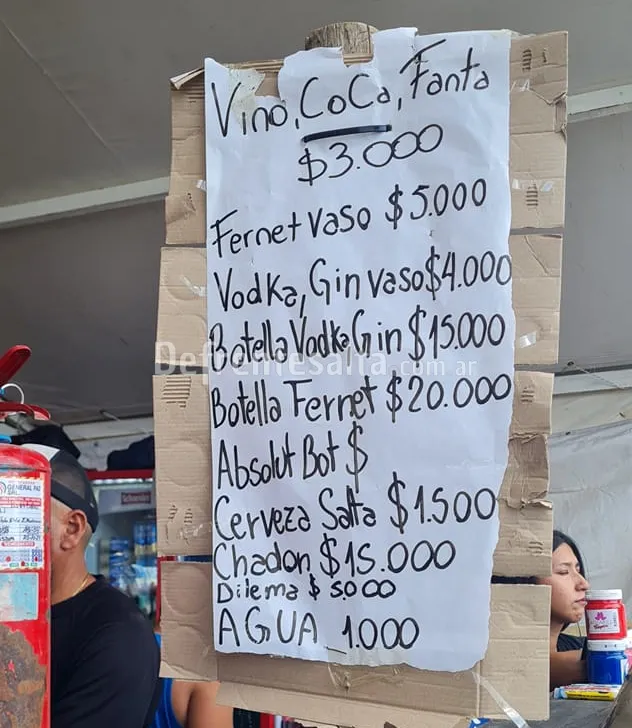 Vino, CoCa, Fanta
$3.000
Fernet vaso $5.000
Vodka, Gin vaso $4.000
Botella Vodka Gin $15.000
Botella Fernet $20.000
Absolut Bot $
Cerveza Salta $1.500
Chadon $15.000
Dilema $ 5000
AGUA_1.000
Defrentesalta.com.ar
GENERAL PAZ
Schneider